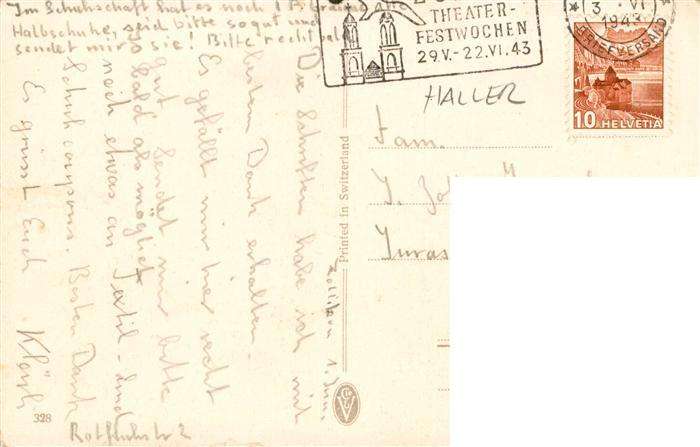 Im Schuhschaft hat es noch 1 P. braune
Halbschuhe, seid bitte so gut und
sendet mir sie! Bitte recht bal
THEATER-
FESTWOCHEN
29.V.-22.VI.43
3. VI
1943
BRIEFVERSAND
10 HELVETIA
HALLER
Fam.
J.
Printed in Switzerland
1. Juni
Die Schriften habe ich mit
bestem Dank erhalten.
Es gefällt mir hier recht
gut. Sendet mir bitte
bald als möglich
noch etwas an Textil- und
Schuhcoupons. Besten Dank
Es grüsst Euch
328